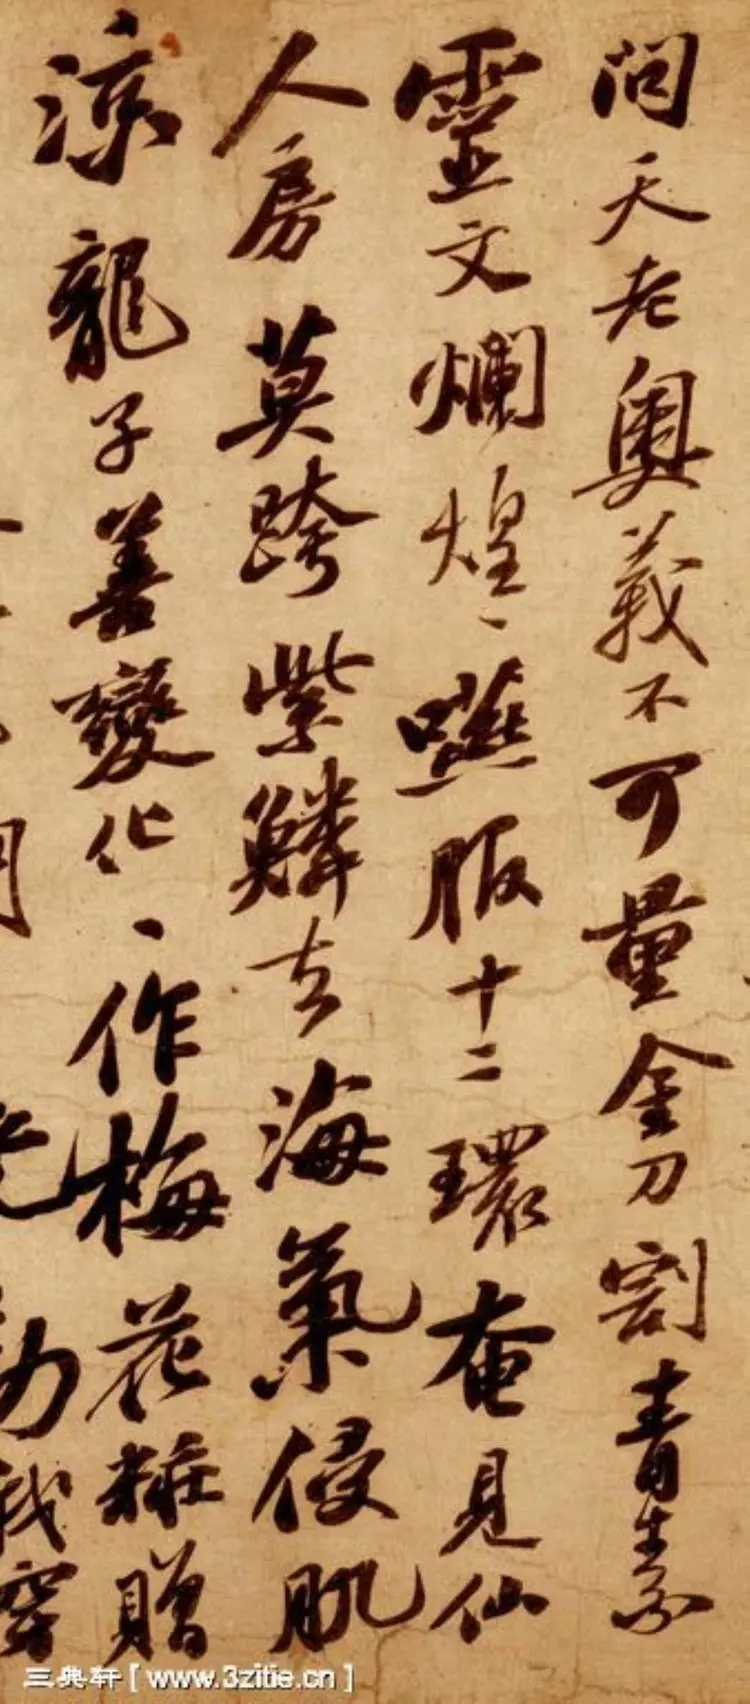 問天老奧義不可量金刀割青素
靈文爛煌、嚥服十二環奄見仙
人房莫跨紫鱗去海氣侵肌
涼龍子善變化、作梅花粧贈
三典轩[www.3zitie.cn]